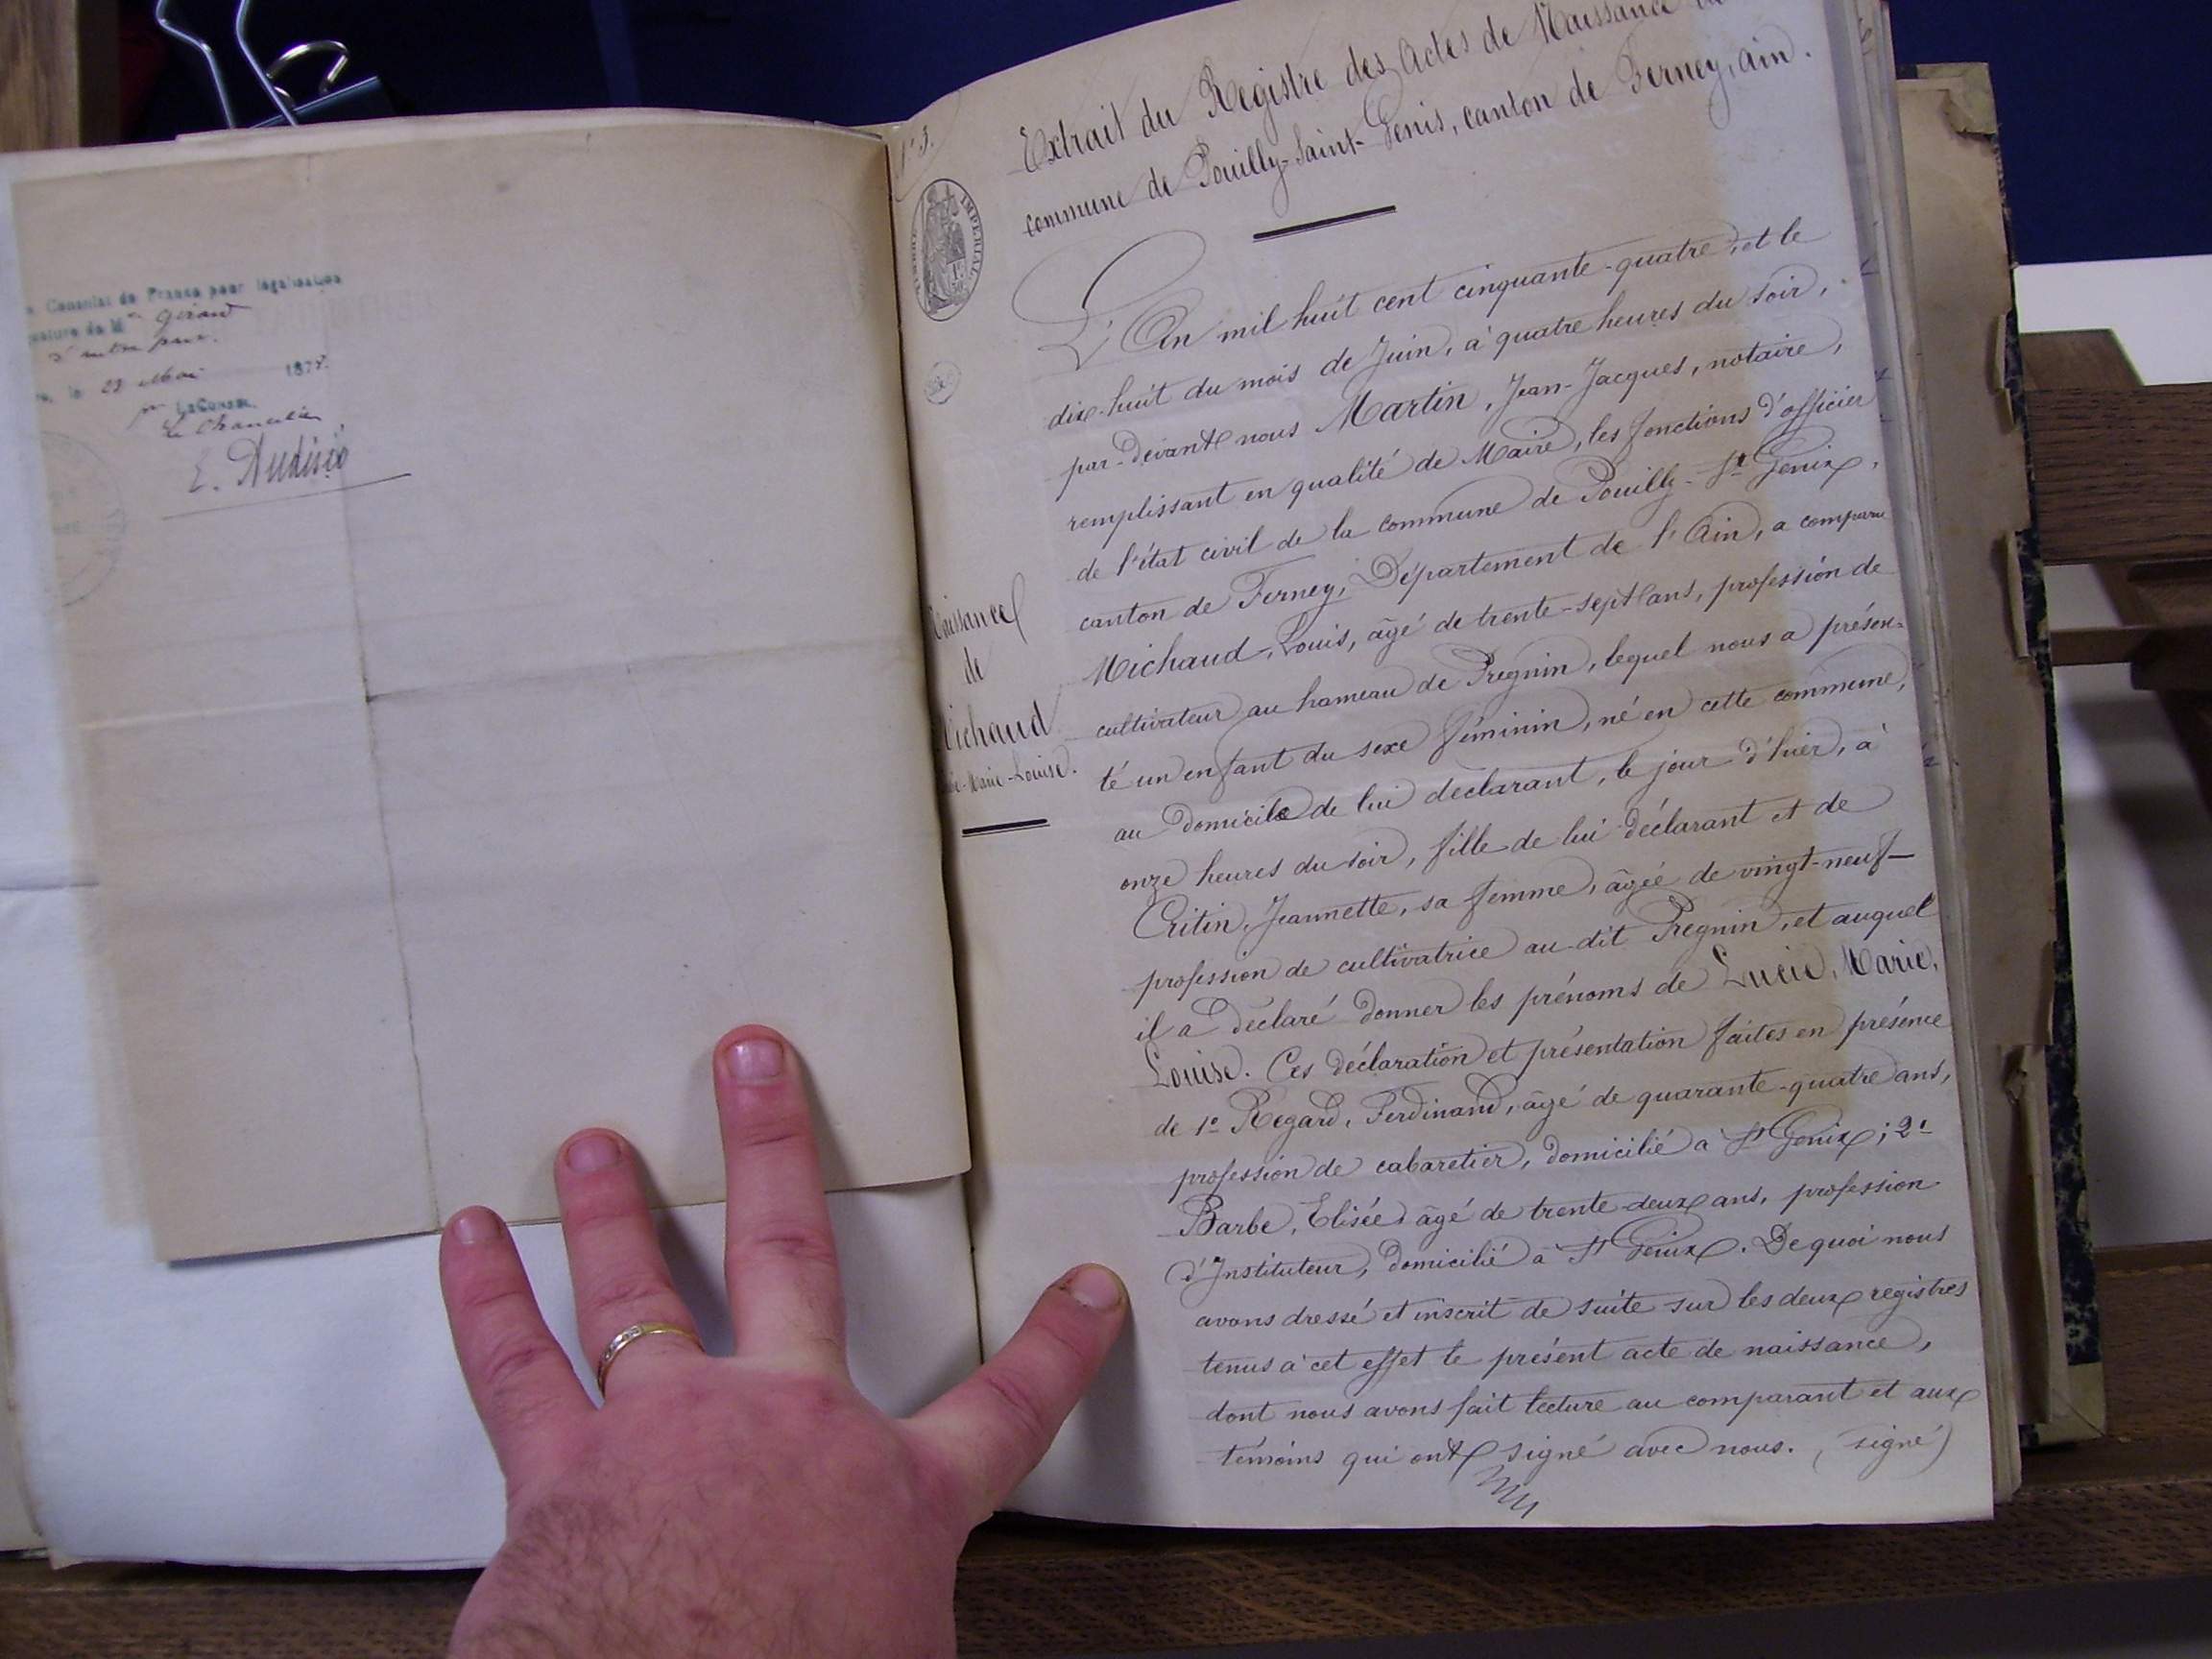 Consulat de France pour légalisation
gnature de M Girard
d'autre part.
le 23 Mai 187
pr Le Consul
Le Chancelier
E. Audisio
N° 3.
TIMBRE IMPERIAL
Extrait du Registre des Actes de Naissance
commune de Pouilly-Saint-Genis, canton de Ferney, Ain.
L'An mil huit cent cinquante-quatre, et le
dix-huit du mois de Juin, à quatre heures du soir,
par-devant nous Martin, Jean-Jacques, notaire,
remplissant en qualité de Maire, les fonctions d'officier
de l'état civil de la commune de Pouilly-St Genix,
canton de Ferney, Département de l'Ain, a comparu
Michaud, Louis, âgé de trente-sept ans, profession de
cultivateur au hameau de Pregnin, lequel nous a présen-
té un enfant du sexe féminin, né en cette commune,
au domicile de lui déclarant, le jour d'hier, à
onze heures du soir, fille de lui déclarant et de
Critin, Jeannette, sa femme, âgée de vingt-neuf
profession de cultivatrice au-dit Pregnin, et auquel
il a déclaré donner les prénoms de Lucie, Marie,
Louise. Ces déclaration et présentation faites en présence
de 1° Regard, Ferdinand, âgé de quarante-quatre ans,
profession de cabaretier, domicilié à St Genix; 2°
Barbe, Elisée, âgé de trente-deux ans, profession
d'Instituteur, domicilié à St Genix. De quoi nous
avons dressé et inscrit de suite sur les deux registres
tenus à cet effet le présent acte de naissance,
dont nous avons fait lecture au comparant et aux
témoins qui ont signé avec nous. (signé)
Naissance
de
Michaud
Marie-Louise.